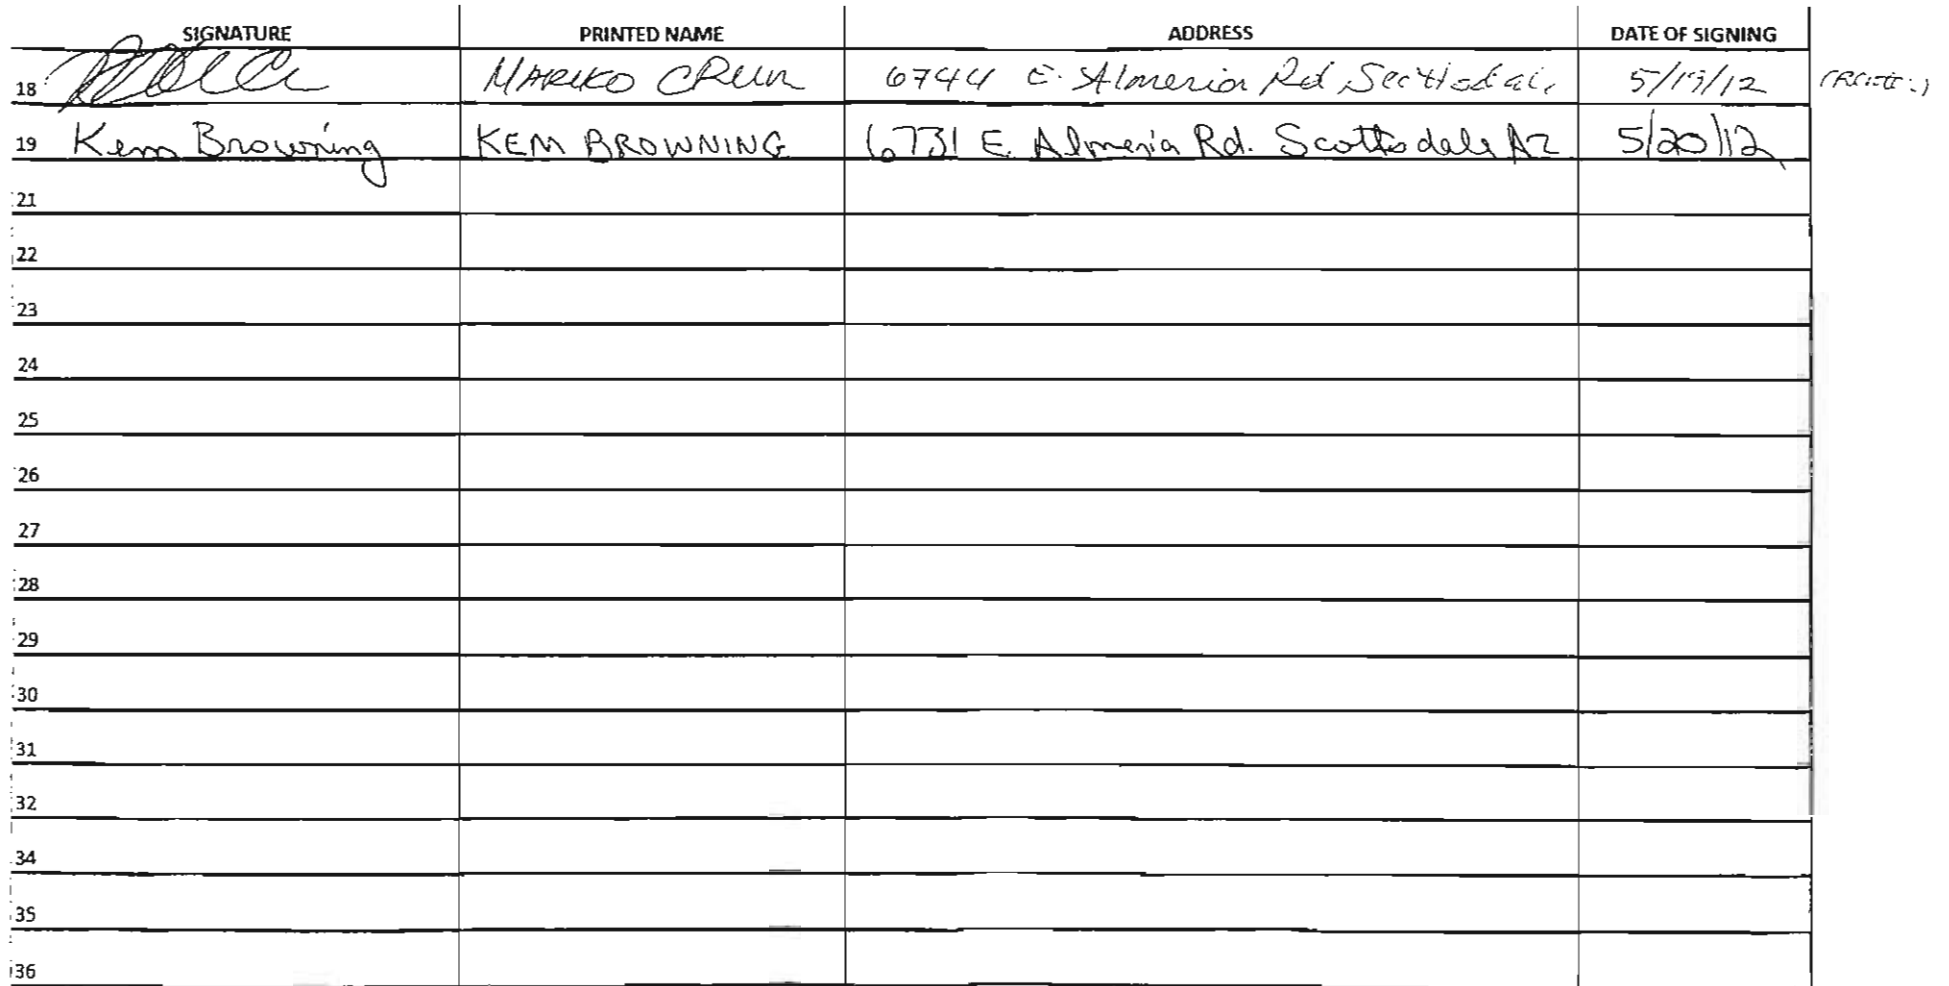 SIGNATURE PRINTED NAME ADDRESS DATE OF SIGNING
18 MARIKO 6744 E. Almeria Rd 5/19/12
19 Kem Browning KEM BROWNING 6731 E. Almeria Rd. Scottsdale AZ 5/20/12
21
22
23
24
25
26
27
28
29
30
31
32
34
35
36